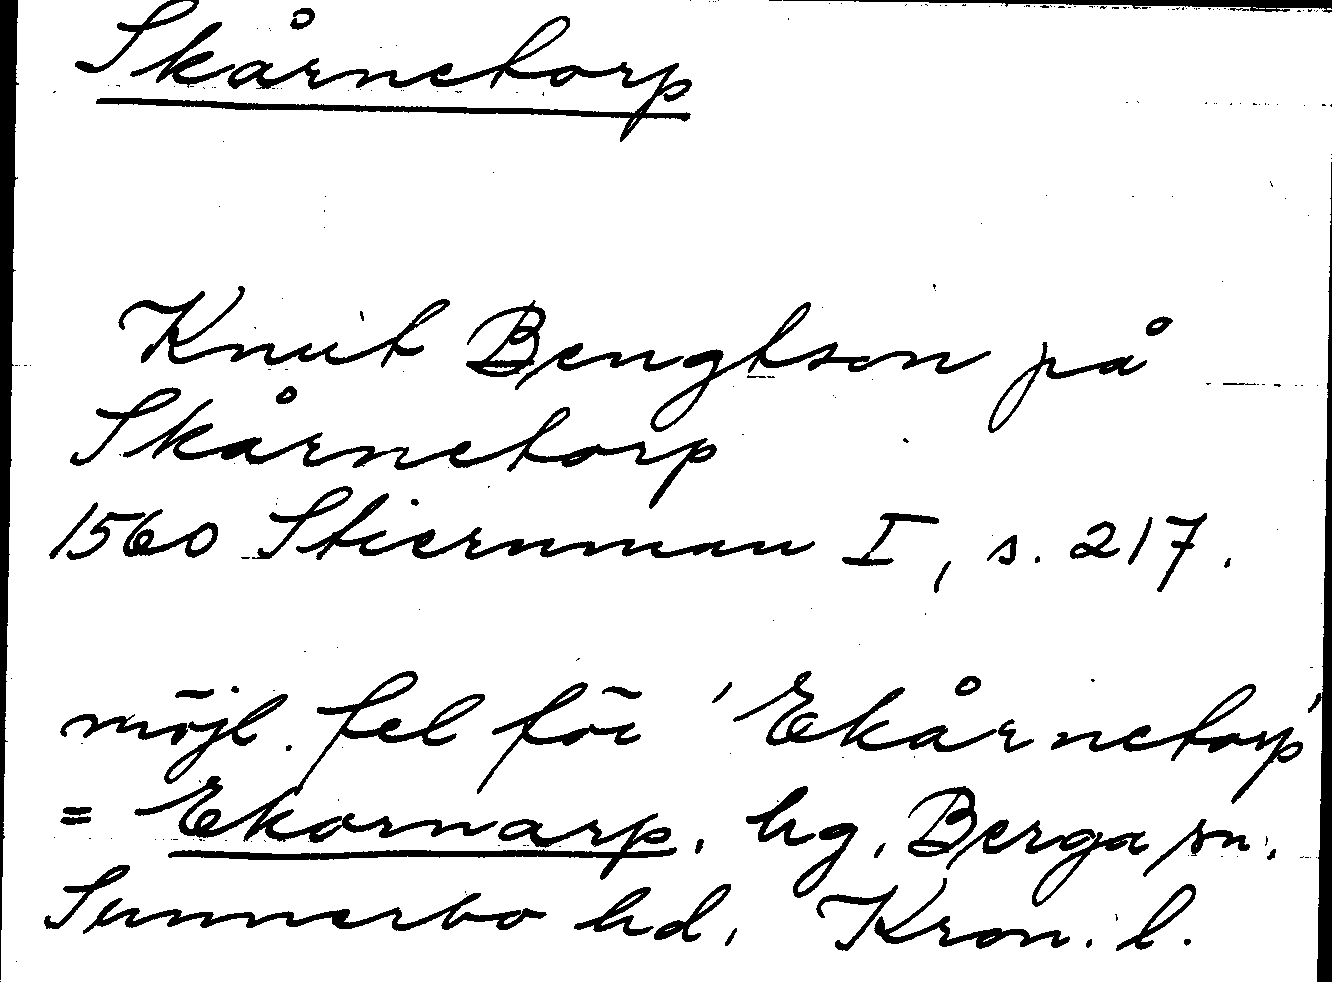 Skårnetorp
Knut Bengtson på
Skårnetorp
1560 Stiernman I, s. 217.
möjl. fel för 'Ekårnetorp'
= Ekornarp, hg, Berga sn,
Sunnerbo hd, Kron. l.